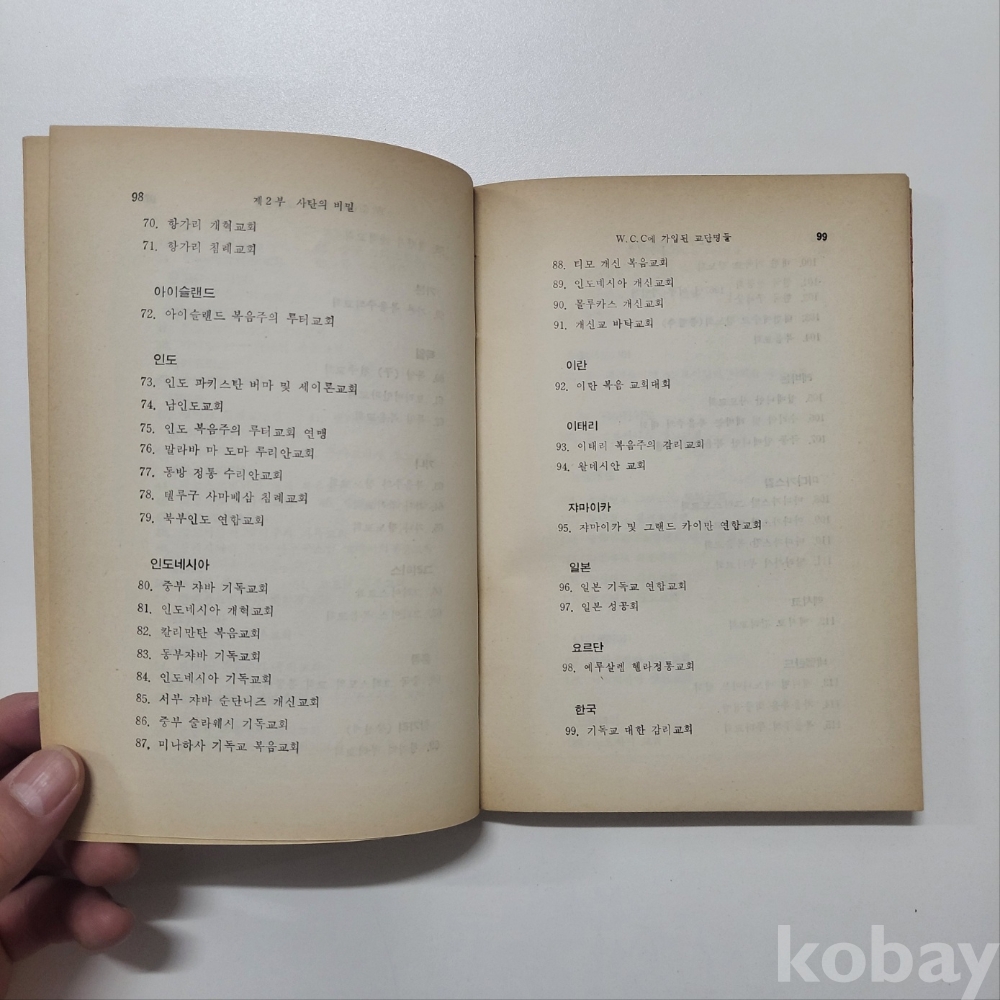 98
제2부 사탄의 비밀
70. 항가리 개혁교회
71. 항가리 침례교회
아이슬랜드
72. 아이슬랜드 복음주의 루터교회
인도
73. 인도 파키스탄 버마 및 세이론교회
74. 남인도교회
75. 인도 복음주의 루터교회 연맹
76. 말라바 마 도마 루리안교회
77. 동방 정통 수리안교회
78. 텔루구 사마베삼 침례교회
79. 북부인도 연합교회
인도네시아
80. 중부 쟈바 기독교회
81. 인도네시아 개혁교회
82. 칼리만탄 복음교회
83. 동부쟈바 기독교회
84. 인도네시아 기독교회
85. 서부 쟈바 순단니즈 개신교회
86. 중부 슬라웨시 기독교회
87. 미나하사 기독교 복음교회
W.C.C에 가입된 교단명들 99
88. 티모 개신 복음교회
89. 인도네시아 개신교회
90. 몰루카스 개신교회
91. 개신교 바탁교회
이란
92. 이란 복음 교회대회
이태리
93. 이태리 복음주의 감리교회
94. 왈데시안 교회
쟈마이카
95. 쟈마이카 및 그랜드 카이만 연합교회
일본
96. 일본 기독교 연합교회
97. 일본 성공회
요르단
98. 예루살렘 헬라정통교회
한국
99. 기독교 대한 감리교회
kobay